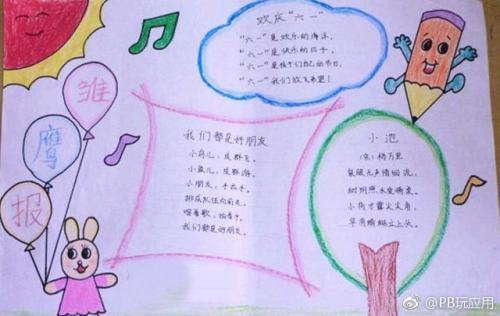 雏
鹰
报
欢庆“六一”
“六一”是欢乐的海洋，
“六一”是快乐的日子，
“六一”是孩子们自己的节日，
“六一”我们放飞希望！
我们都是好朋友
小鸟儿，成群飞。
小鱼儿，成群游。
小朋友，手拉手。
排成队伍向前走。
唱着歌，拍着手。
我们都是好朋友。
小池
（宋）杨万里
泉眼无声惜细流，
树阴照水爱晴柔。
小荷才露尖尖角，
早有蜻蜓立上头。
@PB玩应用